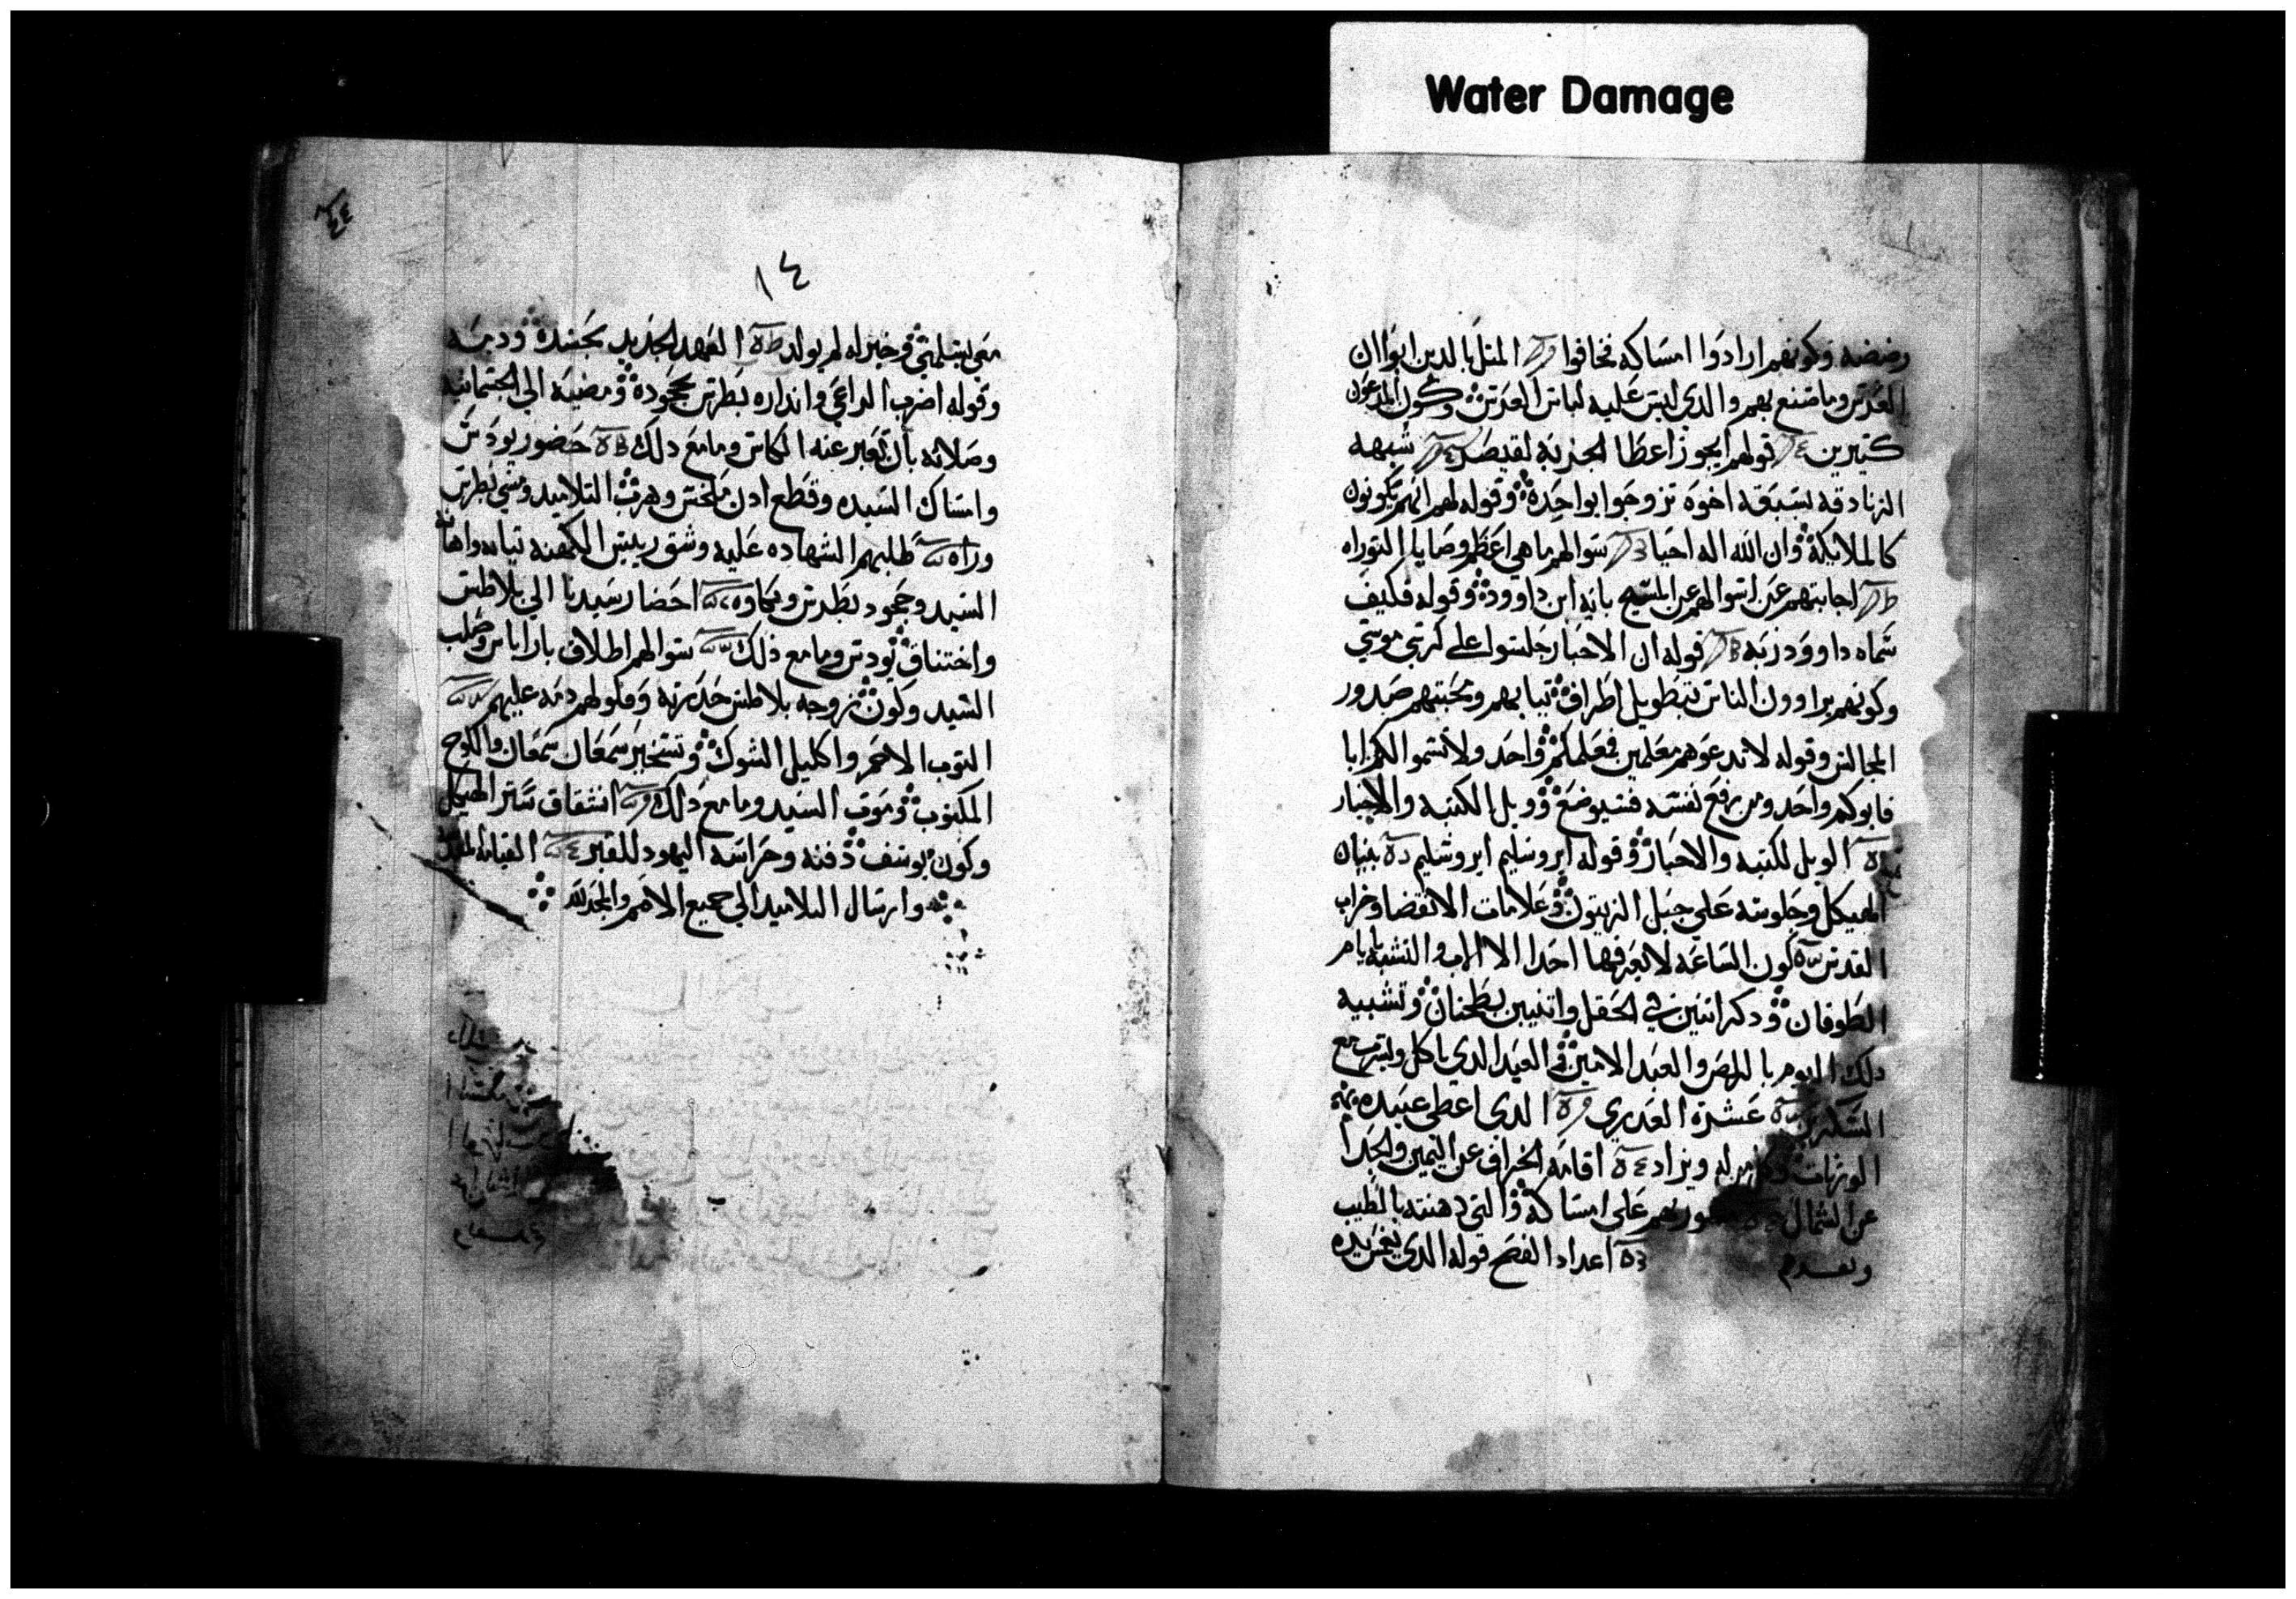 Water Damage
رضضه وكونهم ارادوا امساكه فخافوا المثل بالدين ابوا ان
العرس وما صنع بهم والدي ليس عليه لباس العرس وكون المدعون
كتيرين قولهم ايجوز اعطا الجزيه لقيصر شبهه
الزنادقه بسبعه اخوه تزوجوا بواحده وقوله لهم انهم يكونون
كالملايكة وان الله اله احيا سوالهم ما هي اعظم وصايا التوراه
اجابتهم عن اسوالهم عن المسيح بانه ابن داوود وقوله فكيف
سماه داوود ربه قوله ان الاحبار جلسوا على كرسي موسي
وكونهم يراوون الناس بتطويل اطراف تيابهم ومحبتهم صدور
المجالس وقوله لا تدعوهم معلمين فمعلمكم واحد ولا تسموا لكم ابا
فابوكم واحد ومن رفع نفسه فسيوضع وويل الكتبه والاحبار
الويل للكتبه والاحبار وقوله ايروشليم ايروشليم بنيان
الهيكل وجلوسه علي جبل الزيتون وعلامات الانقضا وخراب
القدس كون الساعه لا يعرفها احدا الا الاب والتشبه بايام
الطوفان ودكر اتنين في الحقل واتنيين يطحنان وتشبيه
دلك اليوم باللص والعبد الامين والعبد الدي ياكل ويشرب مع
عشرة العدري الدي اعطي عبيده
الوزنات له ويزاد اقامه الخراف عن اليمين والجدا
عن الشمال علي امساكه والتي دهنته بالطيب
اعداد الفصح قوله الدي يغمس يده
٤٤
١٤
معي يسلمني وخير له لم يولد العهد الجديد بجسده ودمه
وقوله اضرب الداعي وانداره بطرس بجحوده ومضيه الي الجتمانيه
وصلاته بان تعبر عنه الكاس وما مع دلك حضور يودس
وامساك السيده وقطع ادن ملخس وهرب التلاميد ومشي بطرس
وراه طلبهم الشهاده عليه وشق رييس الكهنه تيابه واهانة
السيد وجحود بطرس وبكاوه احضار سيدنا الي بلاطس
واختناق يودس وما مع ذلك سوالهم اطلاق باراباس وصلب
السيد وكون زوجه بلاطس حدرته وقولهم دمه عليهم
التوب الاحمر واكليل الشوك وتسخير سمعان سمعان واللوح
المكتوب وموت السيد وما مع دلك انشقاق ستر الهيكل
وكون يوسف دفنه وحراسه اليهود للقبر القيامه
وارسال التلاميد الي جميع الامم والمجد لله